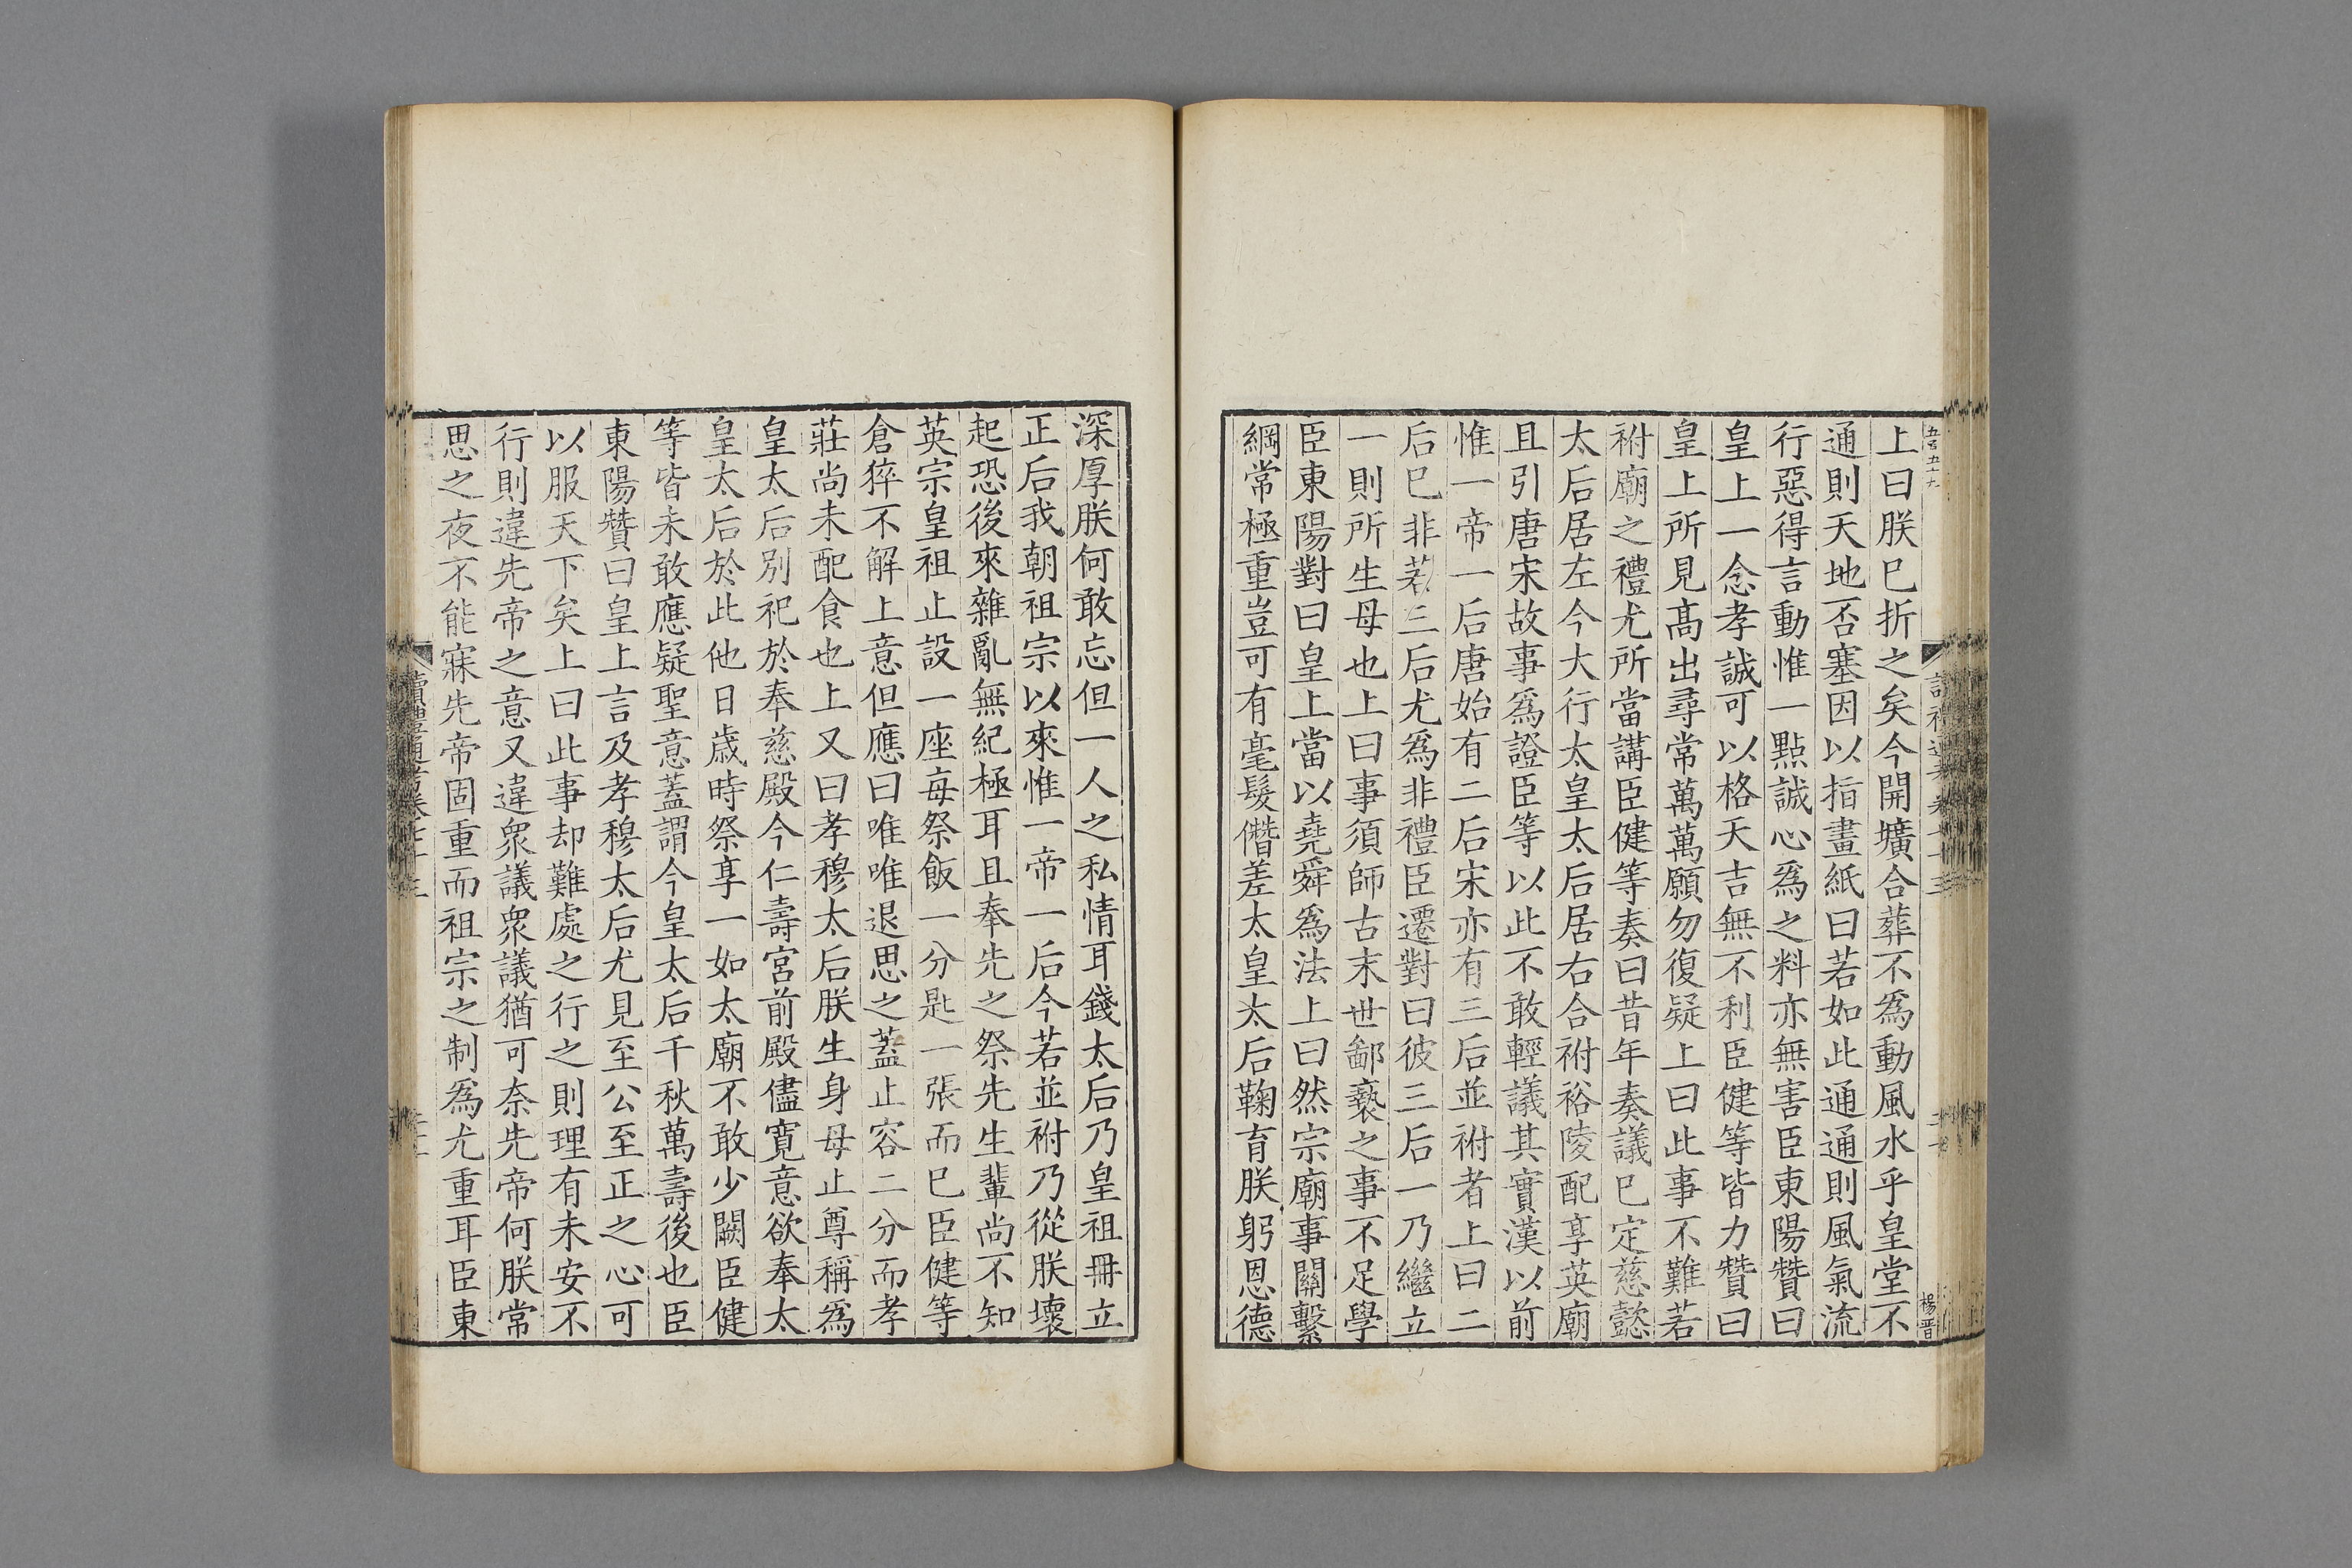 上曰朕已折之矣今開壙合葬不爲動風水乎皇堂不
通則天地否塞因以指畫紙曰若如此通通則風氣流
行惡得言動惟一點誠心爲之料亦無害臣東陽贊曰
皇上一念孝誠可以格天吉無不利臣健等皆力贊曰
皇上所見高出尋常萬萬願勿復疑上曰此事不難若
祔廟之禮尤所當講臣健等奏曰昔年奏議已定慈懿
太后居左今大行太皇太后居右合祔裕陵配享英廟
且引唐宋故事爲證臣等以此不敢輕議其實漢以前
惟一帝一后唐始有二后宋亦有三后並祔者上曰二
后已非若三后尤爲非禮臣遷對曰彼三后一乃繼立
一則所生母也上曰事須師古末世鄙褻之事不足學
臣東陽對曰皇上當以堯舜爲法上曰然宗廟事關繫
綱常極重豈可有毫髮僭差太皇太后鞠育朕躬恩德
深厚朕何敢忘但一人之私情耳錢太后乃皇祖冊立
正后我朝祖宗以來惟一帝一后今若並祔乃從朕壞
起恐後來雜亂無紀極耳且奉先之祭先生輩尚不知
英宗皇祖止設一座每祭飯一分匙一張而已臣健等
倉猝不解上意但應曰唯唯退思之蓋止容二分而孝
莊尚未配食也上又曰孝穆太后朕生身母止尊稱爲
皇太后別祀於奉慈殿今仁壽宮前殿儘寬意欲奉太
皇太后於此他日歲時祭享一如太廟不敢少闕臣健
等皆未敢應疑聖意蓋謂今皇太后千秋萬壽後也臣
東陽贊曰皇上言及孝穆太后尤見至公至正之心可
以服天下矣上曰此事却難處之行之則理有未安不
行則違先帝之意又違衆議衆議猶可奈先帝何朕常
思之夜不能寐先帝固重而祖宗之制爲尤重耳臣東
讀禮通考卷七十三
楊晋